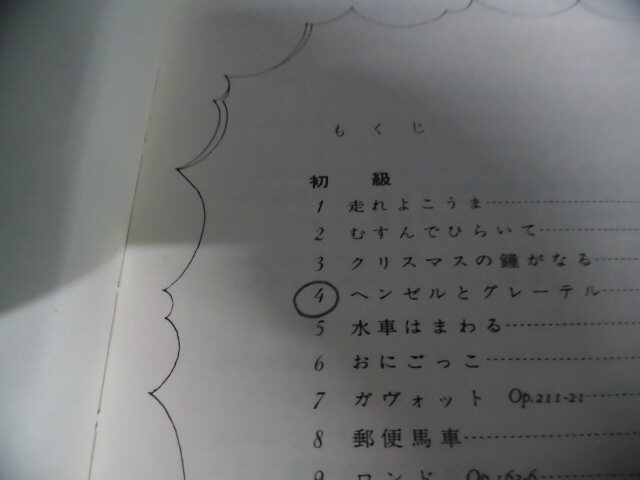 もくじ
初級
1 走れよこうま
2 むすんでひらいて
3 クリスマスの鐘がなる
4 ヘンゼルとグレーテル
5 水車はまわる
6 おにごっこ
7 ガヴォット Op.211-21
8 郵便馬車
9 ロンド Op.163-6